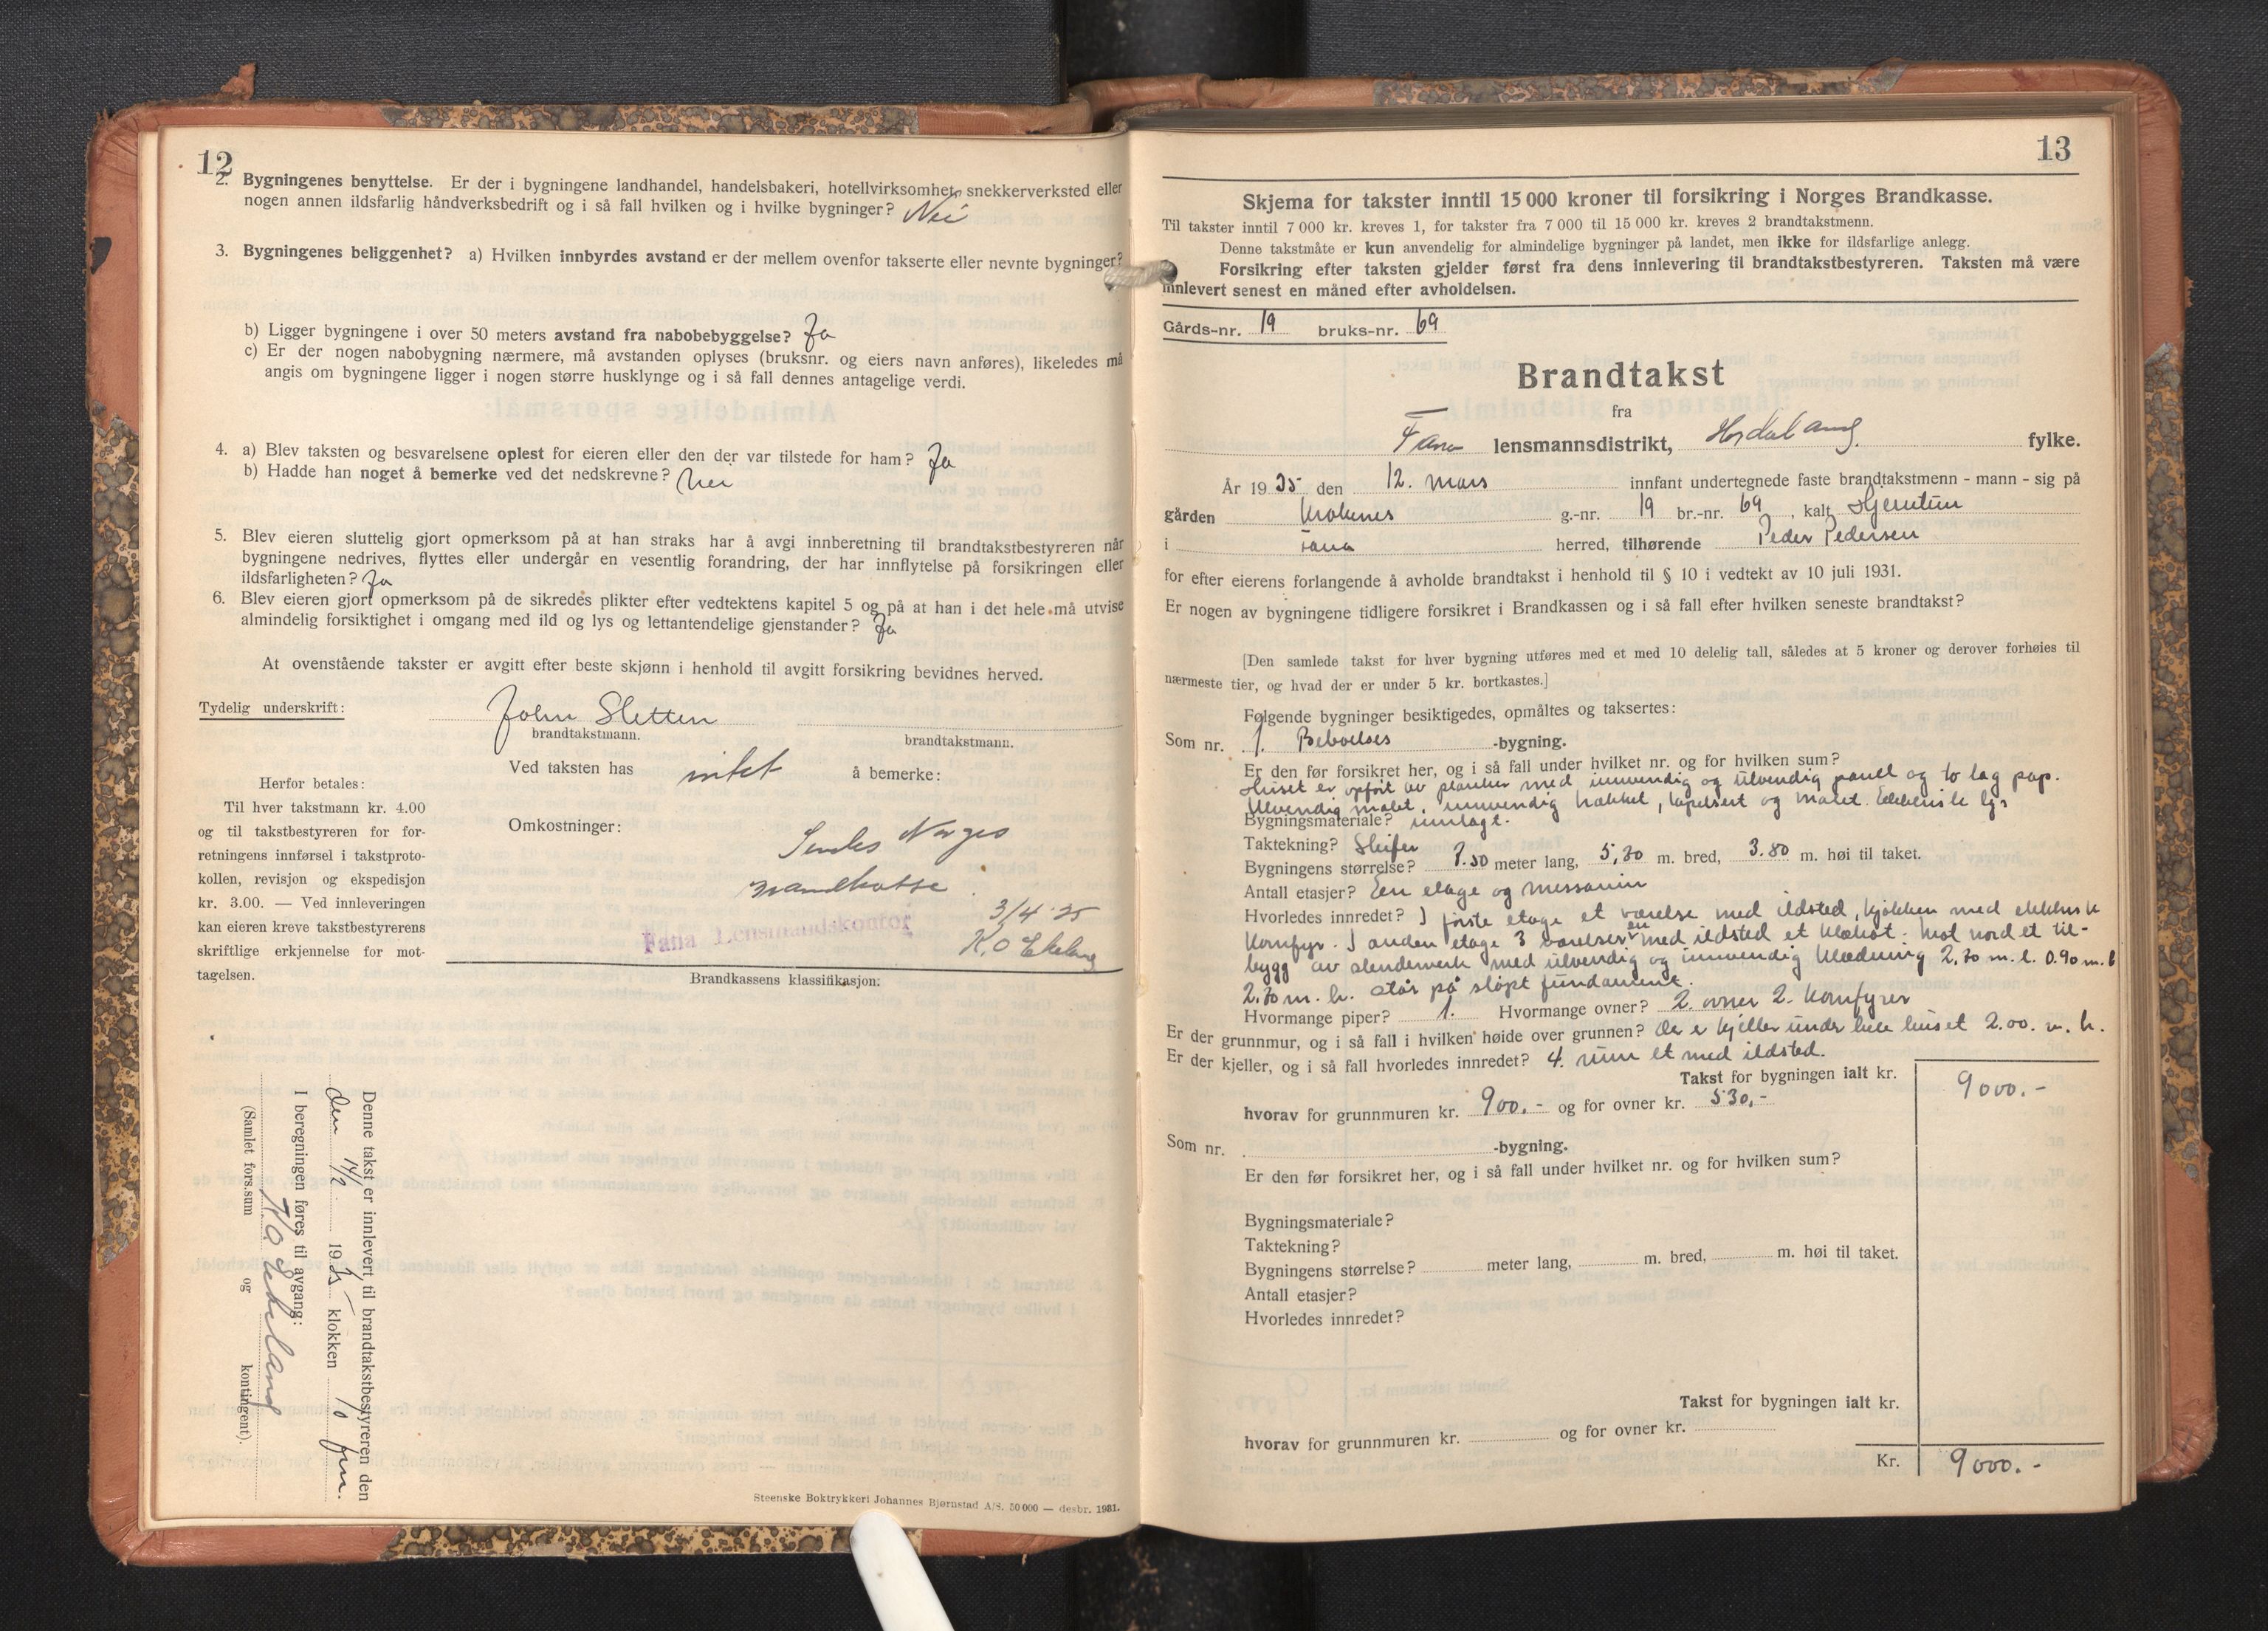 12
2. Bygningenes benyttelse. Er der i bygningene landhandel, handelsbakeri, hotellvirksomhet, snekkerverksted eller
nogen annen ildsfarlig håndverksbedrift og i så fall hvilken og i hvilke bygninger? Nei
3. Bygningenes beliggenhet? a) Hvilken innbyrdes avstand er der mellem ovenfor takserte eller nevnte bygninger?
b) Ligger bygningene i over 50 meters avstand fra nabobebyggelse? Ja
c) Er der nogen nabobygning nærmere, må avstanden oplyses (bruksnr. og eiers navn anføres), likeledes må
angis om bygningene ligger i nogen større husklynge og i så fall dennes antagelige verdi.
4. a) Blev taksten og besvarelsene oplest for eieren eller den der var tilstede for ham? Ja
b) Hadde han noget å bemerke ved det nedskrevne? nei
5. Blev eieren sluttelig gjort opmerksom på at han straks har å avgi innberetning til brandtakstbestyreren når
bygningene nedrives, flyttes eller undergår en vesentlig forandring, der har innflytelse på forsikringen eller
ildsfarligheten? Ja
6. Blev eieren gjort opmerksom på de sikredes plikter efter vedtektens kapitel 5 og på at han i det hele må utvise
almindelig forsiktighet i omgang med ild og lys og lettantendelige gjenstander? Ja
At ovenstående takster er avgitt efter beste skjønn i henhold til avgitt forsikring bevidnes herved.
Tydelig underskrift: John Sletten
brandtakstmann. brandtakstmann.
Ved taksten has intet å bemerke:
Herfor betales:
Til hver takstmann kr. 4.00
og til takstbestyreren for for-
retningens innførsel i takstproto-
kollen, revisjon og ekspedisjon
kr. 3.00. — Ved innleveringen
kan eieren kreve takstbestyrerens
skriftlige erkjennelse for mot-
tagelsen.
Omkostninger:
Sendes Norges
Brandkasse.
3/4 35
Fana Lensmandskontor
K.O Ekeland
Brandkassens klassifikasjon:
Denne takst er innlevert til brandtakstbestyreren den
den 14/2 1935 klokken 10 fm.
I beregningen føres til avgang:
K O Ekeland
(Samlet fors.sum og kontingent).
Steenske Boktrykkeri Johannes Bjørnstad A/S. 50 000 — desbr. 1931.
13
Skjema for takster inntil 15 000 kroner til forsikring i Norges Brandkasse.
Til takster inntil 7 000 kr. kreves 1, for takster fra 7 000 til 15 000 kr. kreves 2 brandtakstmenn.
Denne takstmåte er kun anvendelig for almindelige bygninger på landet, men ikke for ildsfarlige anlegg.
Forsikring efter taksten gjelder først fra dens innlevering til brandtakstbestyreren. Taksten må være
innlevert senest en måned efter avholdelsen.
Gårds-nr. 19 bruks-nr. 69
Brandtakst
fra
Fana lensmannsdistrikt, Hordaland fylke.
År 1935 den 12. mars innfant undertegnede faste brandtakstmenn - mann - sig på
gården Krokenes g.-nr. 19 br.-nr. 69, kalt
i Fana herred, tilhørende Peder Pedersen
for efter eierens forlangende å avholde brandtakst i henhold til § 10 i vedtekt av 10 juli 1931.
Er nogen av bygningene tidligere forsikret i Brandkassen og i så fall efter hvilken seneste brandtakst?
[Den samlede takst for hver bygning utføres med et med 10 delelig tall, således at 5 kroner og derover forhøies til
nærmeste tier, og hvad der er under 5 kr. bortkastes.]
Følgende bygninger besiktigedes, opmåltes og taksertes:
Som nr. 1. Beboelses -bygning.
Er den før forsikret her, og i så fall under hvilket nr. og for hvilken sum?
Huset er opført av planker med innvendig og utvendig panel og to lag pap.
Utvendig malet, innvendig trækket, tapetsert og malet. Elektriste lys
Bygningsmateriale? innlagt.
Taktekning? Skifer
Bygningens størrelse? 7.50 meter lang, 5,70 m. bred, 3.80 m. høi til taket.
Antall etasjer? En etage og messanin
Hvorledes innredet? I første etage et værelse med ildsted, kjøkken med elektrisk
komfyr. I anden etage 3 værelser en med ildsted et klokat. Mot nord et til-
bygg av stenderverk med utvendig og innvendig klædning 2,70 m. l. 0.90 m. b
2.70 m. h. står på støpt fundament.
Hvormange piper? 1. Hvormange ovner? 2. ovner 2. komfyrer
Er der grunnmur, og i så fall i hvilken høide over grunnen? der er kjeller under hele huset 2.00. m. h.
Er der kjeller, og i så fall hvorledes innredet? 4. rum et med ildsted.
Takst for bygningen ialt kr. 9000.-
hvorav for grunnmuren kr. 900.- og for ovner kr. 530,-
Som nr. -bygning.
Er den før forsikret her, og i så fall under hvilket nr. og for hvilken sum?
Bygningsmateriale?
Taktekning?
Bygningens størrelse? meter lang, m. bred, m. høi til taket.
Antall etasjer?
Hvorledes innredet?
Takst for bygningen ialt kr.
hvorav for grunnmuren kr. og for ovner kr.
Kr. 9000.-